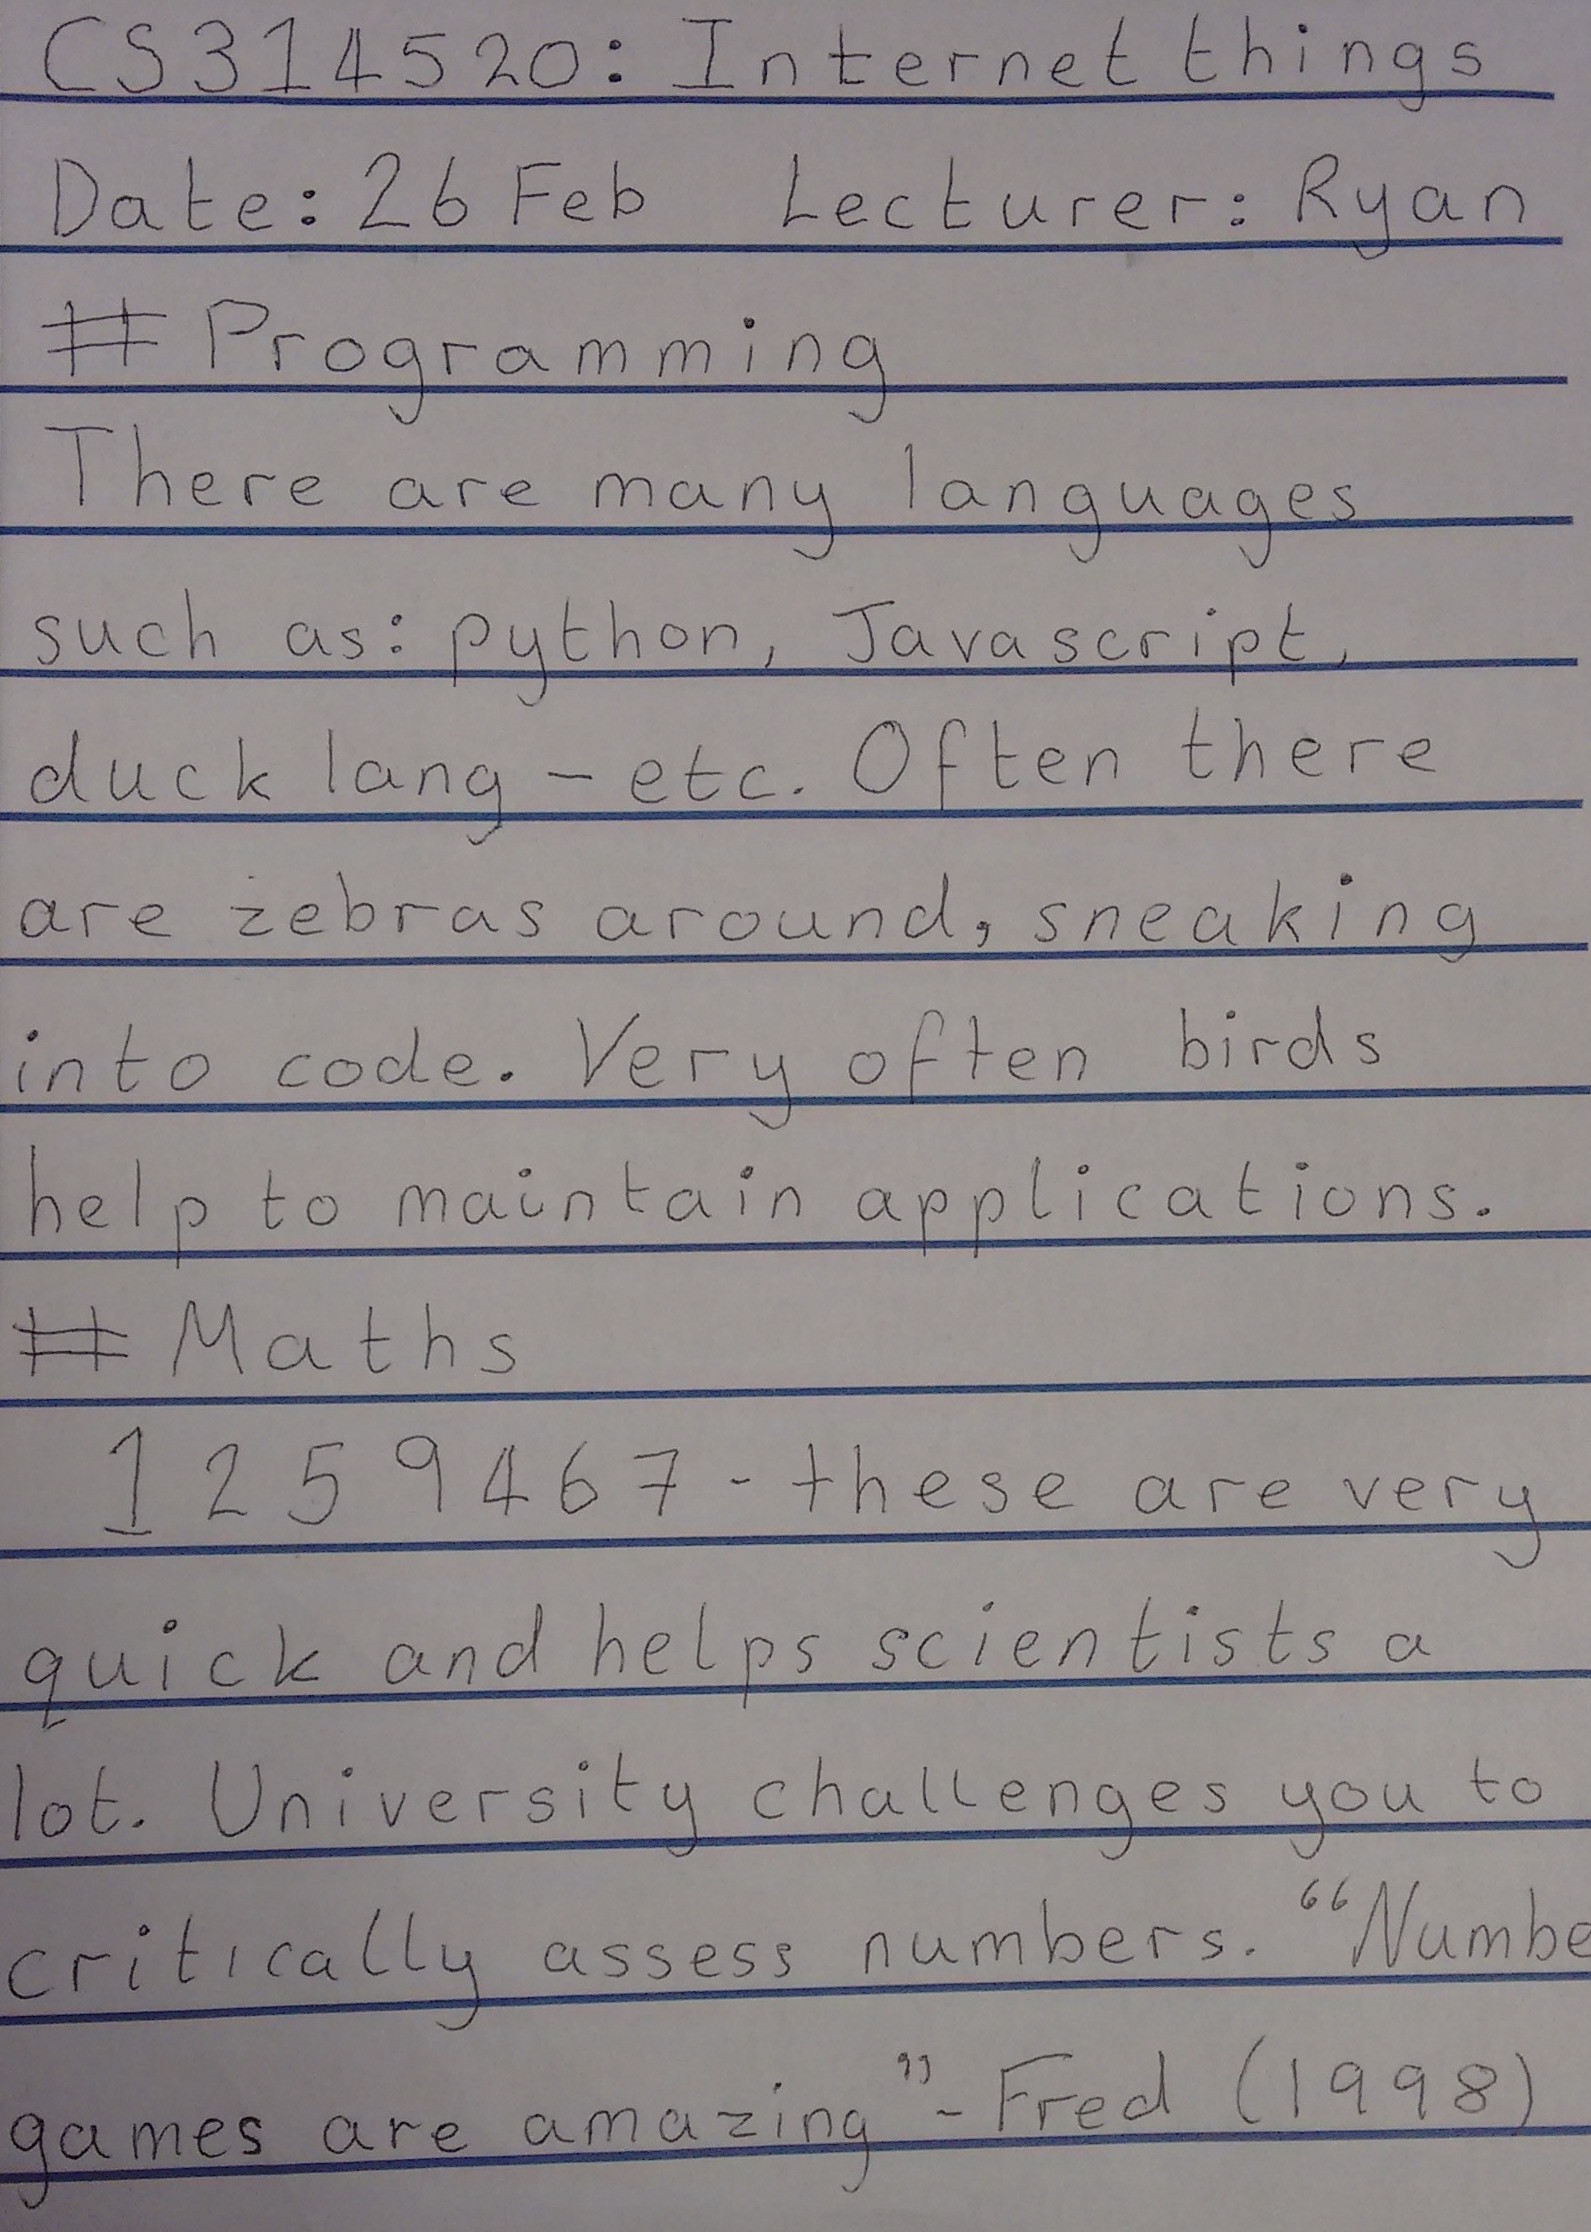 CS314520: Internet things
Date: 26 Feb Lecturer: Ryan
# Programming
There are many languages
such as: python, Javascript,
duck lang - etc. Often there
are zebras around, sneaking
into code. Very often birds
help to maintain applications.
# Maths
1 2 5 9 4 6 7 - these are very
quick and helps scientists a
lot. University challenges you to
critically assess numbers. “Numbe
games are amazing” - Fred (1998)